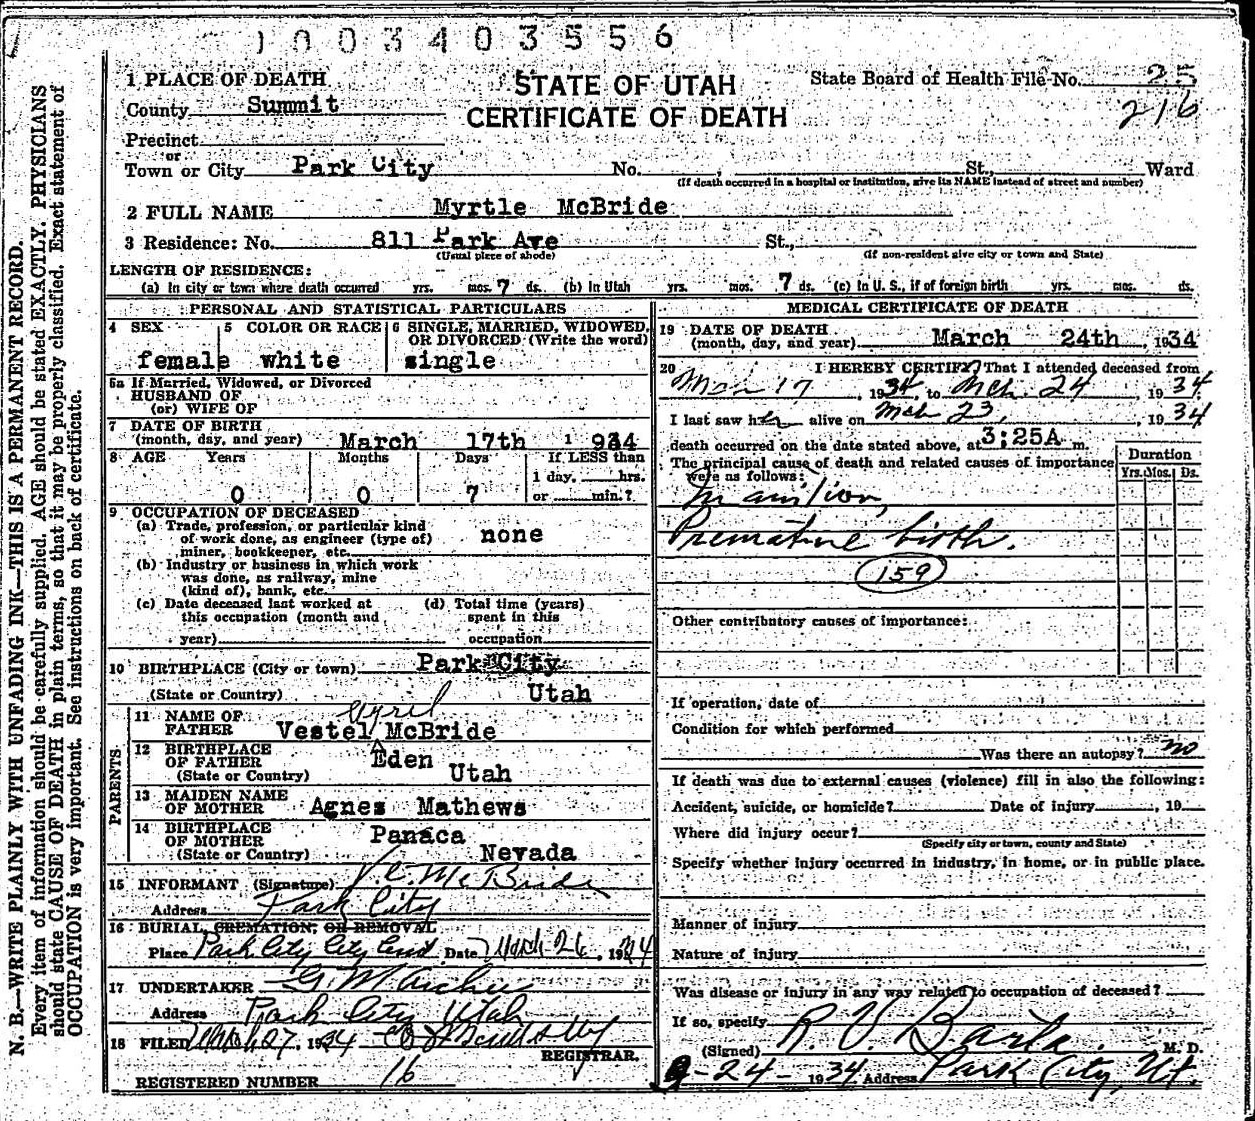 1003403556
1 PLACE OF DEATH
STATE OF UTAH
CERTIFICATE OF DEATH
State Board of Health File No. 25
216
County Summit
Precinct
or
Town or City Park City No. , St., Ward
(If death occurred in a hospital or institution, give its NAME instead of street and number)
2 FULL NAME Myrtle McBride
3 Residence: No. 811 Park Ave St.,
(Usual place of abode) (If non-resident give city or town and State)
LENGTH OF RESIDENCE:
(a) In city or town where death occurred yrs. mos. 7 ds. (b) In Utah yrs. mos. 7 ds. (c) In U. S., if of foreign birth yrs. mos. ds.
PERSONAL AND STATISTICAL PARTICULARS
4 SEX 5 COLOR OR RACE 6 SINGLE, MARRIED, WIDOWED, OR DIVORCED (Write the word)
female white single
6a If Married, Widowed, or Divorced
HUSBAND OF
(or) WIFE OF
7 DATE OF BIRTH
(month, day, and year) March 17th 1934
8 AGE Years Months Days If LESS than
1 day, hrs.
0 0 7 or min.?
9 OCCUPATION OF DECEASED
(a) Trade, profession, or particular kind
of work done, as engineer (type of)
miner, bookkeeper, etc. none
(b) Industry or business in which work
was done, as railway, mine
(kind of), bank, etc.
(c) Date deceased last worked at
this occupation (month and
year)
(d) Total time (years)
spent in this
occupation
10 BIRTHPLACE (City or town) Park City
(State or Country) Utah
PARENTS
11 NAME OF
FATHER Vestel Cyril McBride
12 BIRTHPLACE
OF FATHER Eden
(State or Country) Utah
13 MAIDEN NAME
OF MOTHER Agnes Mathews
14 BIRTHPLACE
OF MOTHER Panaca
(State or Country) Nevada
15 INFORMANT (Signature) V.C. McBride
Address Park City
16 BURIAL, CREMATION, OR REMOVAL
Place Park City City Cem Date March 26, 1934
17 UNDERTAKER G. M Archer
Address Park City Utah
18 FILED March 27, 1934
REGISTRAR.
REGISTERED NUMBER 16
MEDICAL CERTIFICATE OF DEATH
19 DATE OF DEATH
(month, day, and year) March 24th, 1934
20 I HEREBY CERTIFY, That I attended deceased from
Mar 17, 1934, to Mch. 24, 1934
I last saw her alive on Mch 23, 1934
death occurred on the date stated above, at 3:25A m.
The principal cause of death and related causes of importance
were as follows:
Duration
Yrs. Mos. Ds.
Inanition,
Premature birth.
159
Other contributory causes of importance:
If operation, date of
Condition for which performed
Was there an autopsy? no
If death was due to external causes (violence) fill in also the following:
Accident, suicide, or homicide? Date of injury , 19
Where did injury occur?
(Specify city or town, county and State)
Specify whether injury occurred in industry, in home, or in public place.
Manner of injury
Nature of injury
Was disease or injury in any way related to occupation of deceased?
If so, specify
(Signed) R V Barta. M. D.
-24- 1934 Address Park City, Ut.
N. B.—WRITE PLAINLY WITH UNFADING INK—THIS IS A PERMANENT RECORD.
Every item of information should be carefully supplied. AGE should be stated EXACTLY. PHYSICIANS
should state CAUSE OF DEATH in plain terms, so that it may be properly classified. Exact statement of
OCCUPATION is very important. See instructions on back of certificate.